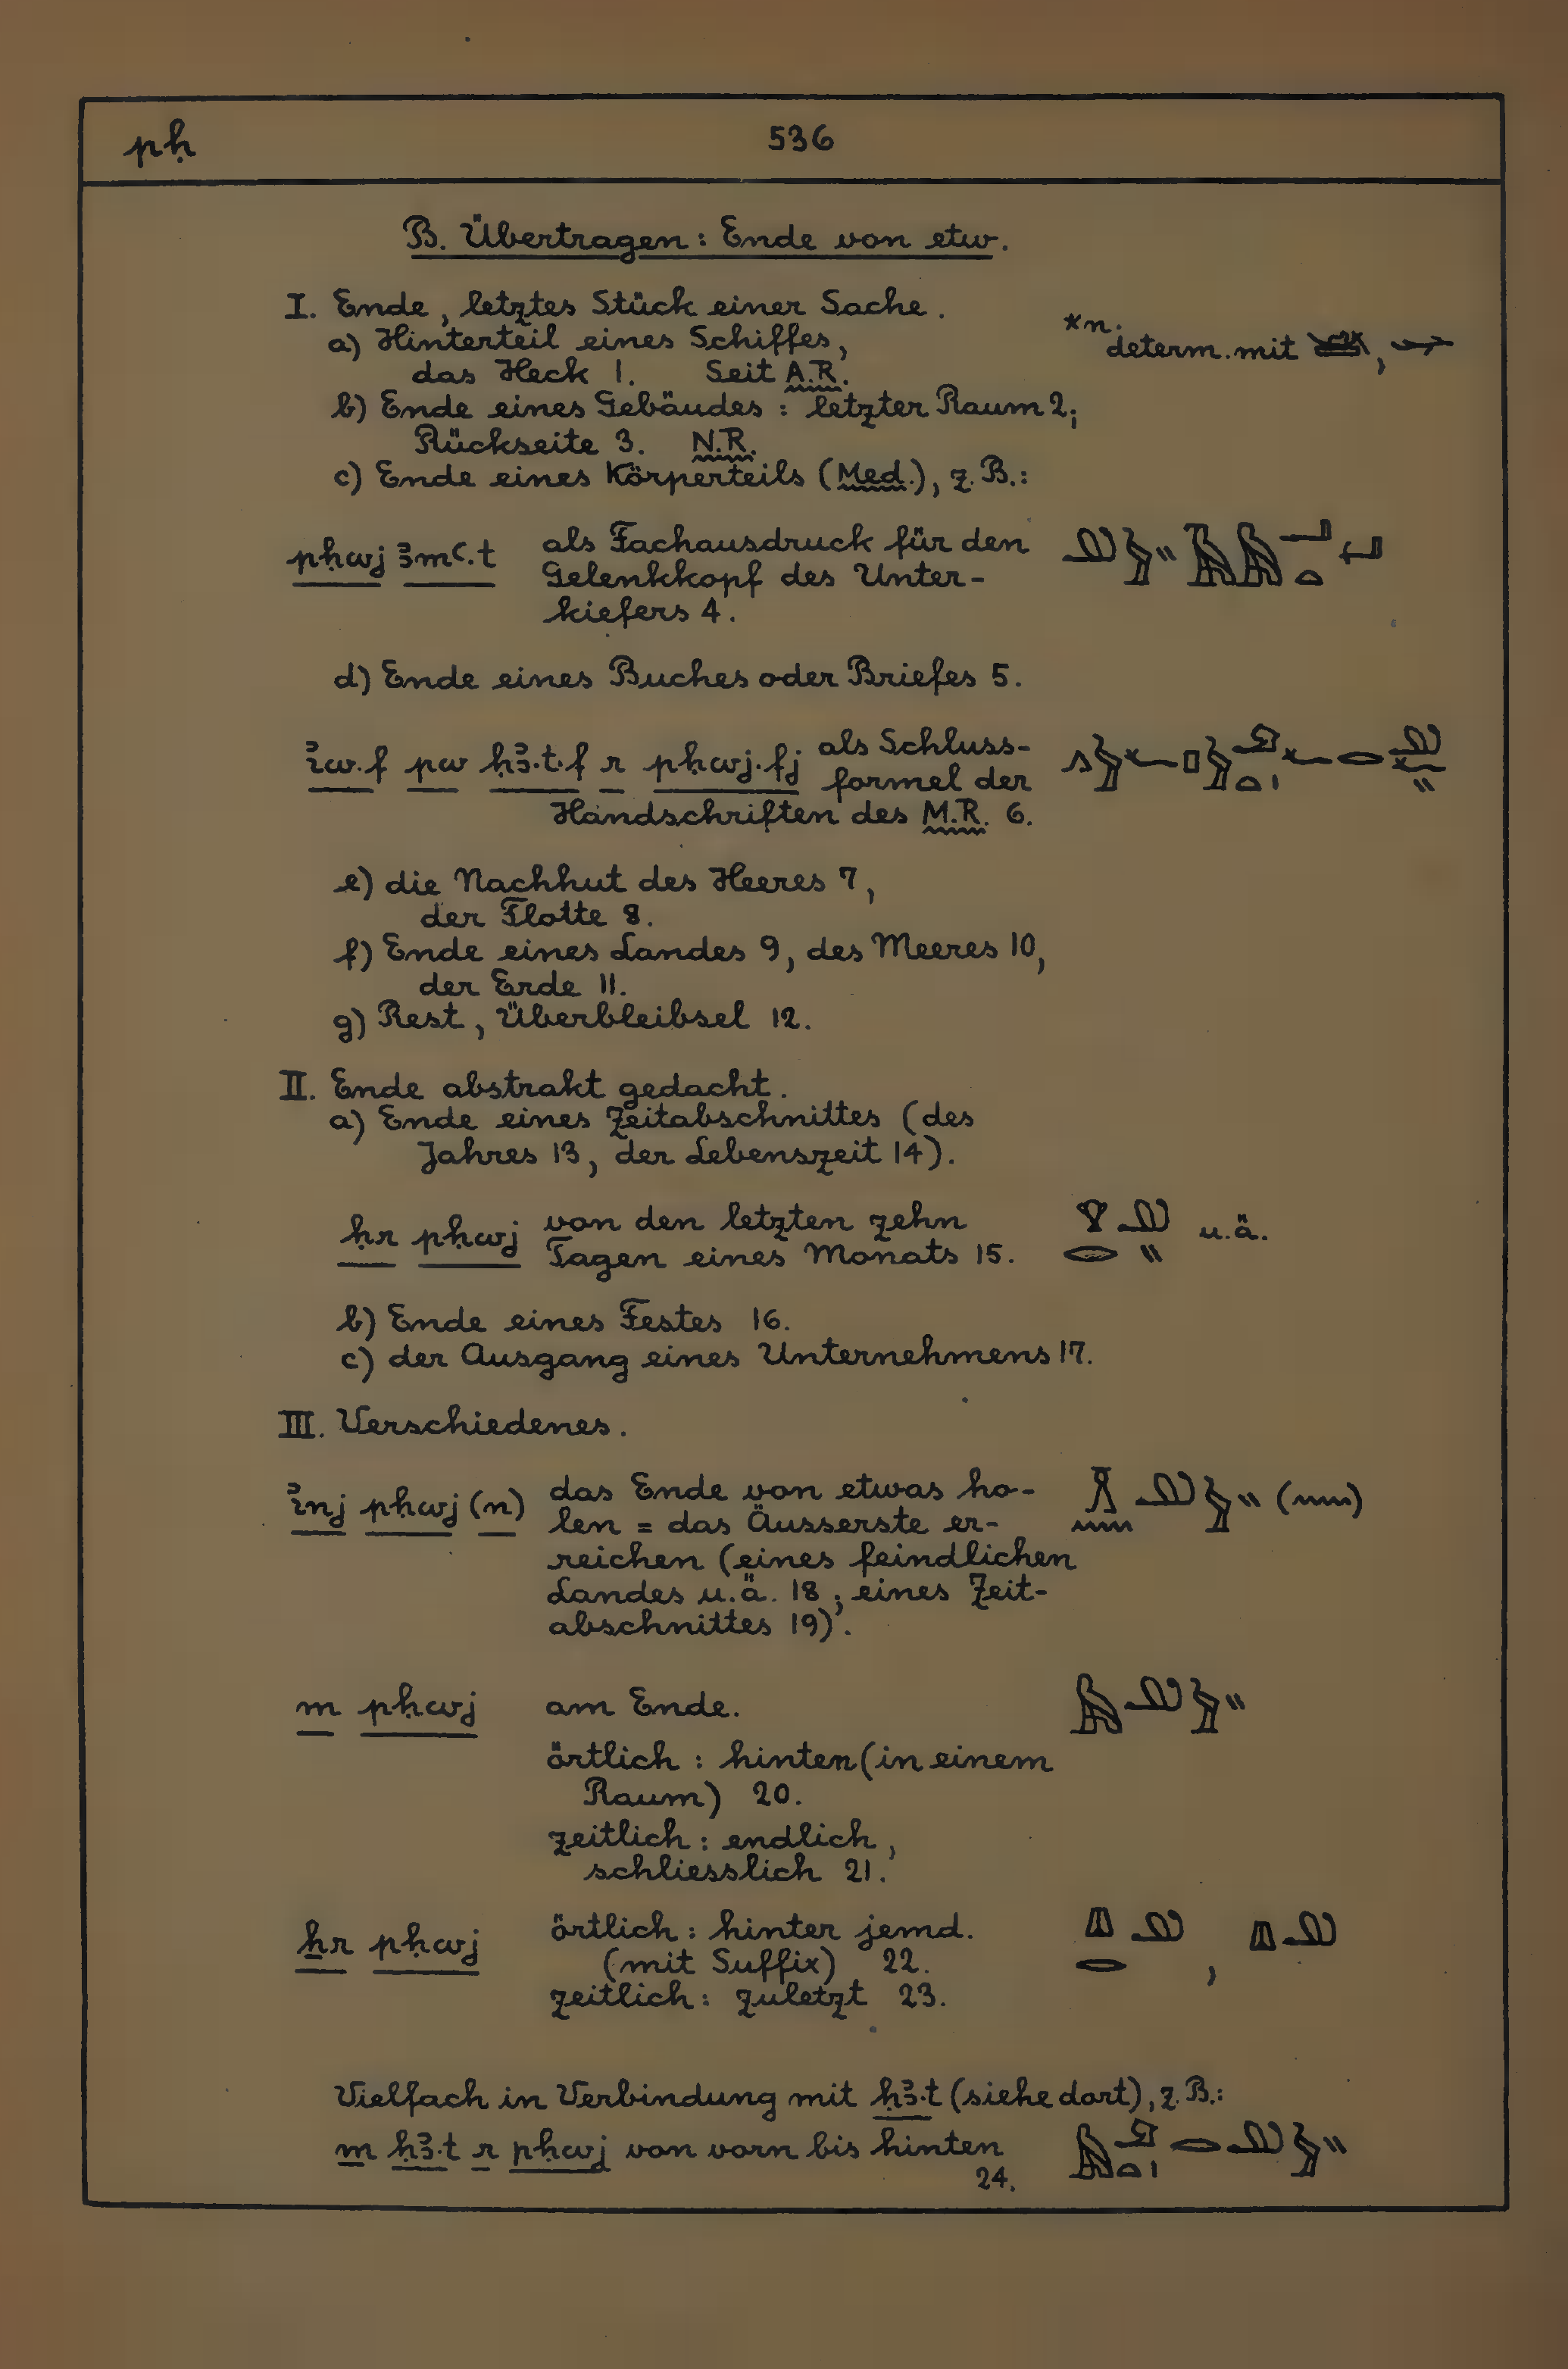 pḥ
536
B. Übertragen: Ende von etw.
I. Ende, letztes Stück einer Sache.
a) Hinterteil eines Schiffes,
das Heck 1. Seit A.R.
*n. determ. mit
b) Ende eines Gebäudes: letzter Raum 2;
Rückseite 3. N.R.
c) Ende eines Körperteils (Med.), z.B.:
pḥwj ꜣmꜥ.t als Fachausdruck für den
Gelenkkopf des Unter-
kiefers 4.
d) Ende eines Buches oder Briefes 5.
ı͗w.f pw ḥꜣ.t.f r pḥwj.fj als Schluss-
formel der
Handschriften des M.R. 6.
e) die Nachhut des Heeres 7,
der Flotte 8.
f) Ende eines Landes 9, des Meeres 10,
der Erde 11.
g) Rest, Überbleibsel 12.
II. Ende abstrakt gedacht.
a) Ende eines Zeitabschnittes (des
Jahres 13, der Lebenszeit 14).
ḥr pḥwj von den letzten zehn
Tagen eines Monats 15. u.ä.
b) Ende eines Festes 16.
c) der Ausgang eines Unternehmens 17.
III. Verschiedenes.
ı͗nj pḥwj (n) das Ende von etwas ho-
len = das Äusserste er-
reichen (eines feindlichen
Landes u.ä. 18; eines Zeit-
abschnittes 19).
m pḥwj am Ende.
örtlich: hinten (in einem
Raum) 20.
zeitlich: endlich,
schliesslich 21.
ẖr pḥwj örtlich: hinter jemd.
(mit Suffix) 22.
zeitlich: zuletzt 23.
Vielfach in Verbindung mit ḥꜣ.t (siehe dort), z.B.:
m ḥꜣ.t r pḥwj von vorn bis hinten
24.